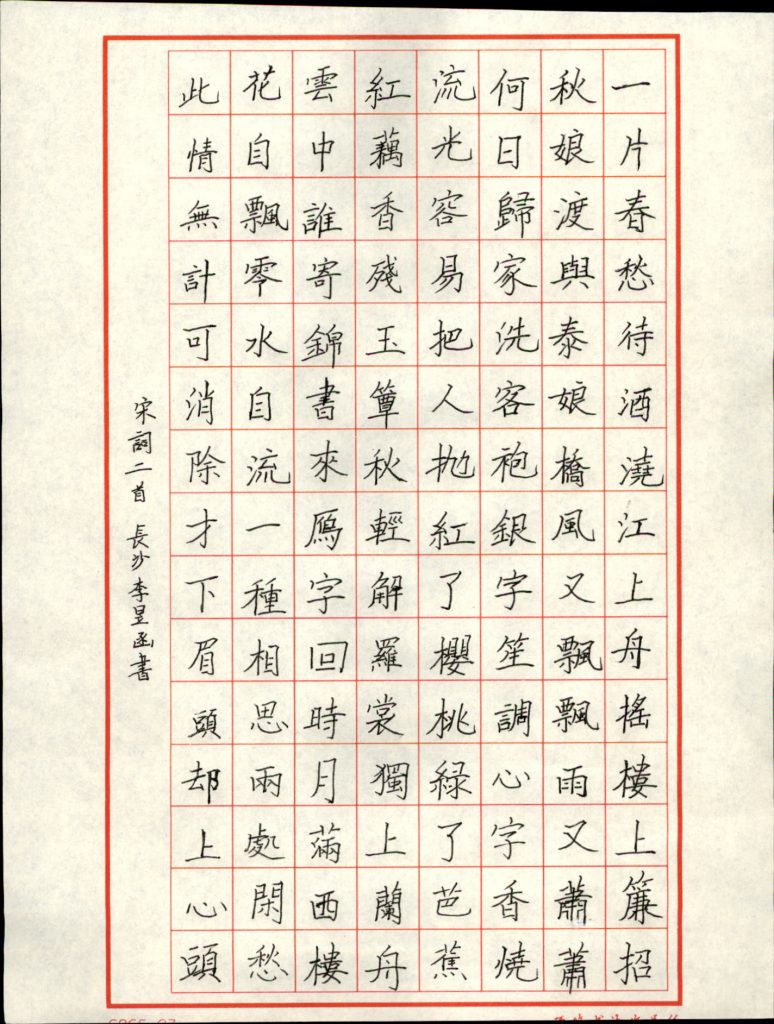 一片春愁待酒澆江上舟搖樓上簾招
秋娘渡與泰娘橋風又飄飄雨又蕭蕭
何日歸家洗客袍銀字笙調心字香燒
流光容易把人拋紅了櫻桃綠了芭蕉
紅藕香殘玉簟秋輕解羅裳獨上蘭舟
雲中誰寄錦書來鴈字回時月滿西樓
花自飄零水自流一種相思兩處閑愁
此情無計可消除才下眉頭却上心頭
宋詞二首 長沙李昱函書